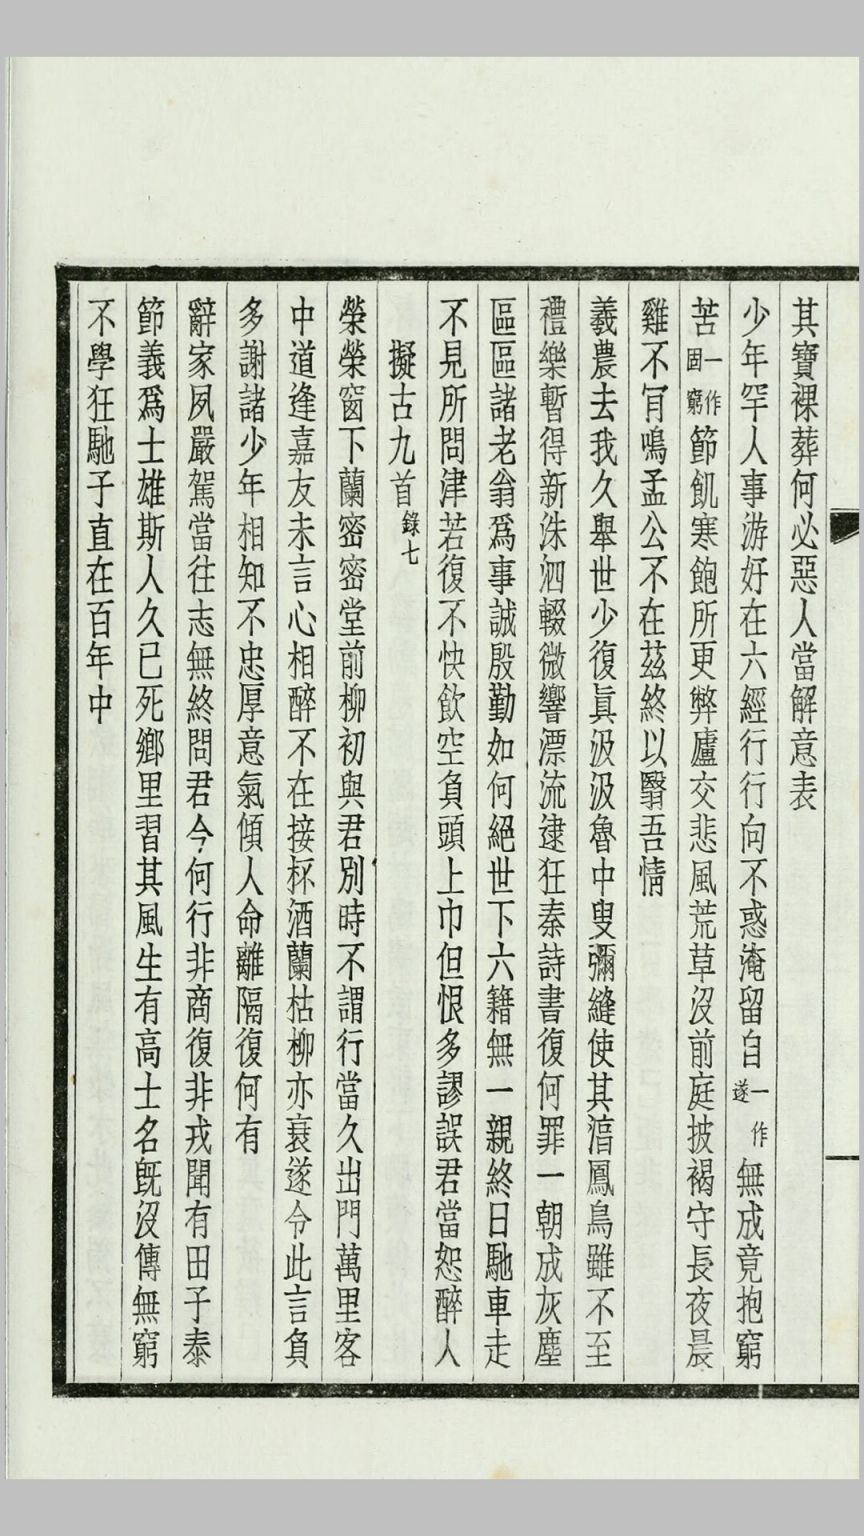 其寶裸葬何必惡人當解意表
少年罕人事游好在六經行行向不惑淹留自一作遂無成竟抱窮
苦一作固窮節飢寒飽所更弊廬交悲風荒草沒前庭披褐守長夜晨
雞不肎鳴孟公不在茲終以翳吾情
羲農去我久舉世少復眞汲汲魯中叟彌縫使其湻鳳鳥雖不至
禮樂暫得新洙泗輟微響漂流逮狂秦詩書復何罪一朝成灰塵
區區諸老翁爲事誠殷勤如何絕世下六籍無一親終日馳車走
不見所問津若復不快飲空負頭上巾但恨多謬誤君當恕醉人
擬古九首錄七
榮榮窗下蘭密密堂前柳初與君別時不謂行當久出門萬里客
中道逢嘉友未言心相醉不在接杯酒蘭枯柳亦衰遂令此言負
多謝諸少年相知不忠厚意氣傾人命離隔復何有
辭家夙嚴駕當往志無終問君今何行非商復非戎聞有田子泰
節義爲士雄斯人久已死鄉里習其風生有高士名旣沒傳無窮
不學狂馳子直在百年中